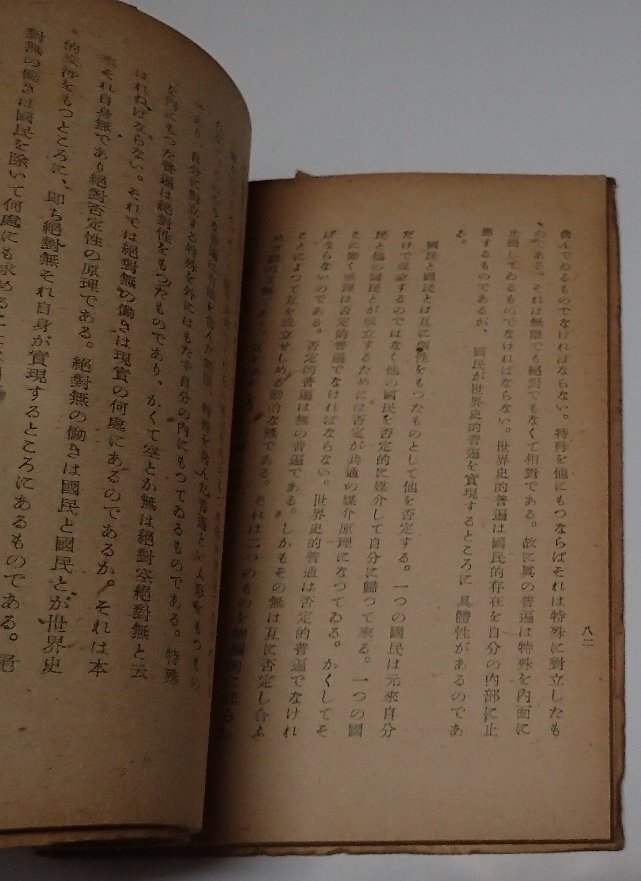 八二
含んでゐるものでなければならない。特殊を他にもつならばそれは特殊に對立したも
のである。それは無限でも絶對でもなくて相對である。故に眞の普遍は特殊を内面に
止揚してゐるものでなければならない。世界史的普遍は國民的存在を自分の内部に止
揚するものであるが、國民が世界史的普遍を實現するところに具體性があるのであ
る。
國民と國民とは互に個性をもつたものとして他を否定する。一つの國民は元來自分
だけで成立するのではなく他の國民を否定的に媒介して自分に歸つて來る。一つの國
民と他の國民とが成立するためには否定が共通の媒介原理になつてゐる。かくしてそ
こに働く原理は否定的普遍でなければならない。世界史的普遍は否定的普遍でなけれ
ばならないのである。否定的普遍は無の普遍である。しかもその無は互に否定し合ふ
ことによつて互を成立せしめる動的な無である。それは二つのものを
であり、自分に對立する特殊を外にはもたず自分の内にもつてゐるものである。特殊
を内にもつた普遍は絶對性をもつたものであり、かくて空とか無は絶對空絶對無と云
はれねばならない。それでは絶對無の働きは現實の何處にあるのであるか。それは本
來それ自身無であり絶對否定性の原理である。絶對無の働きは國民と國民とが世界史
的交渉をもつところに、即ち絶對無それ自身が實現するところにあるものである。
對無の働きは國民を除いて何處にも求めること